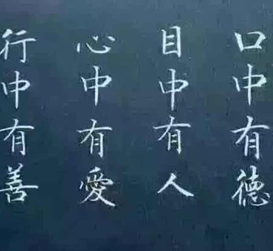 口中有德
目中有人
心中有愛
行中有善